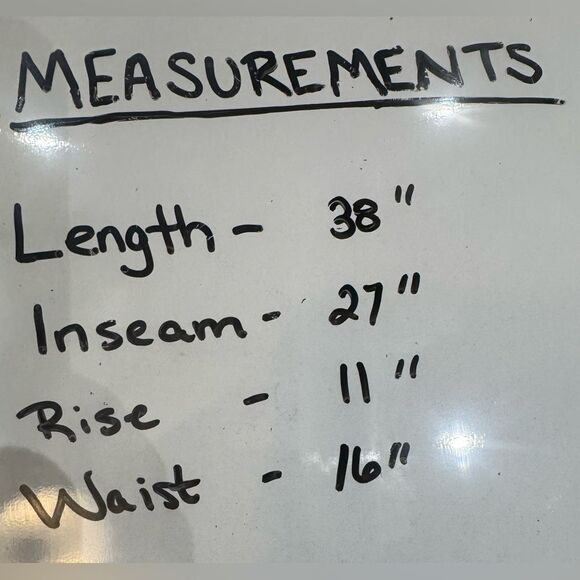 MEASUREMENTS
Length - 38"
Inseam - 27"
Rise - 11"
Waist - 16"